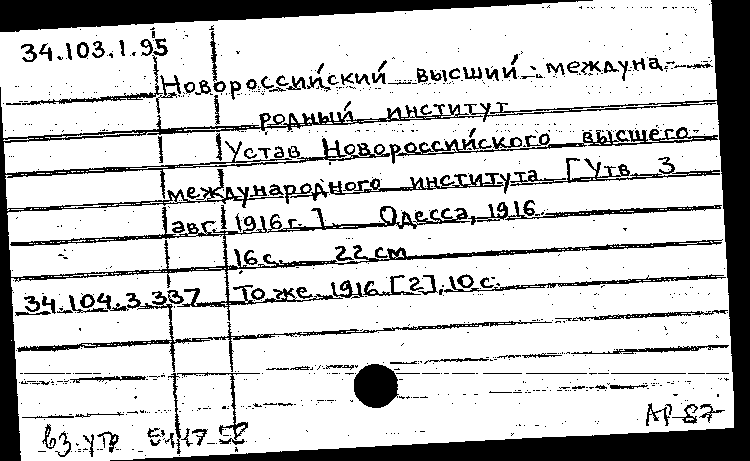 34.103.1.95
Новороссийский высший междуна-
родный институт
Устав Новороссийского высшего
международного института [Утв. 3
авг. 1916 г.]. Одесса, 1916.
16 с. 22 см
34.104.3.337 То же. 1916. [2], 10 с.
вз. утр
АР 87